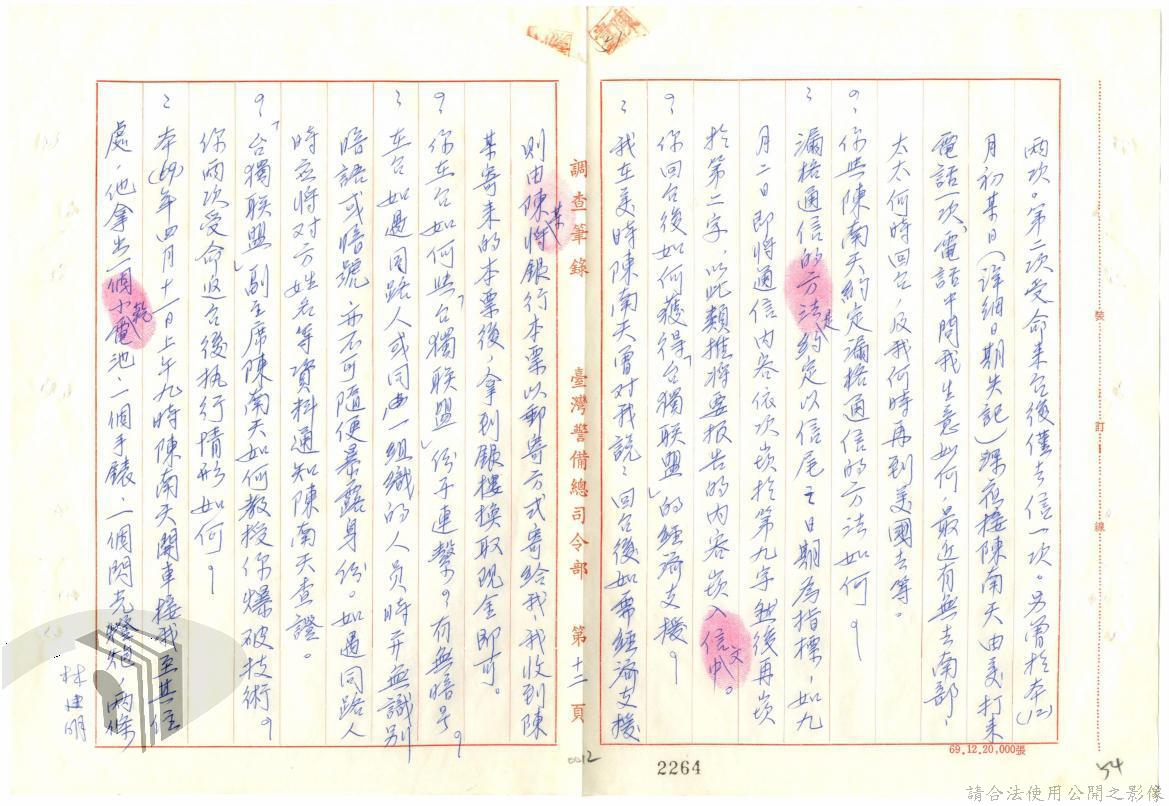 兩次。第二次受命来台後僅去信一次。另曾於本(12)
月初某日(詳細日期失記)深夜接陳南天由美打来
電話一次,電話中問我生意如何,最近有無去南部,
太太何時回台,及我何時再到美國去等。
？你與陳南天約定漏格通信的方法如何？
：漏格通信的方法是約定以信尾之日期為指標,如九
月二日即將通信内容依次崁於第九字然後再崁
於第二字,以此類推將要报告的内容崁入信文中。
？你回台後如何獲得「台獨联盟」的經济支援？
：我在美時陳南天曾对我說：回台後如需經济支援
則由陳某將銀行本票以郵寄方式寄給我,我收到陳
某寄来的本票後,拿到銀樓換取現金即可。
？你在台如何與「台獨联盟」份子連繫？有無暗号？
：在台如遇同路人或同一組織的人员時并無識别
暗語或暗號,亦不可隨便暴露身份。如遇同路人
時应將对方姓名等資料通知陳南天查證。
？「台獨联盟」副主席陳南天如何教授你爆破技術?
你兩次受命返台後执行情形如何？
：本(69)年四月十一日上午九時陳南天開車接我至其住
處,他拿出一個小乾電池、一個手錶、一個閃光燈炮,兩條
林建明
調查筆錄
臺灣警備總司令部
第十二頁
裝
訂
線
69.12.20,000張
0012
2264
54
請合法使用公開之影像